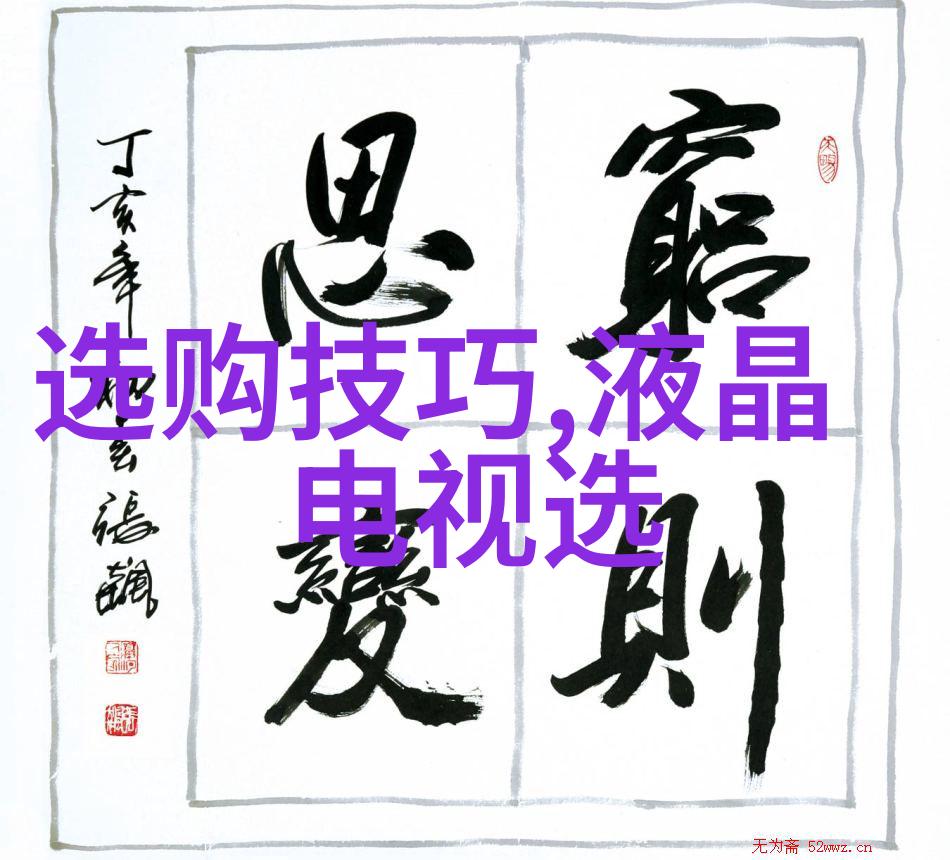 窮則
思變
丁亥年
張飆
选购技巧,液晶
电视选
无为斋 52wwz.cn